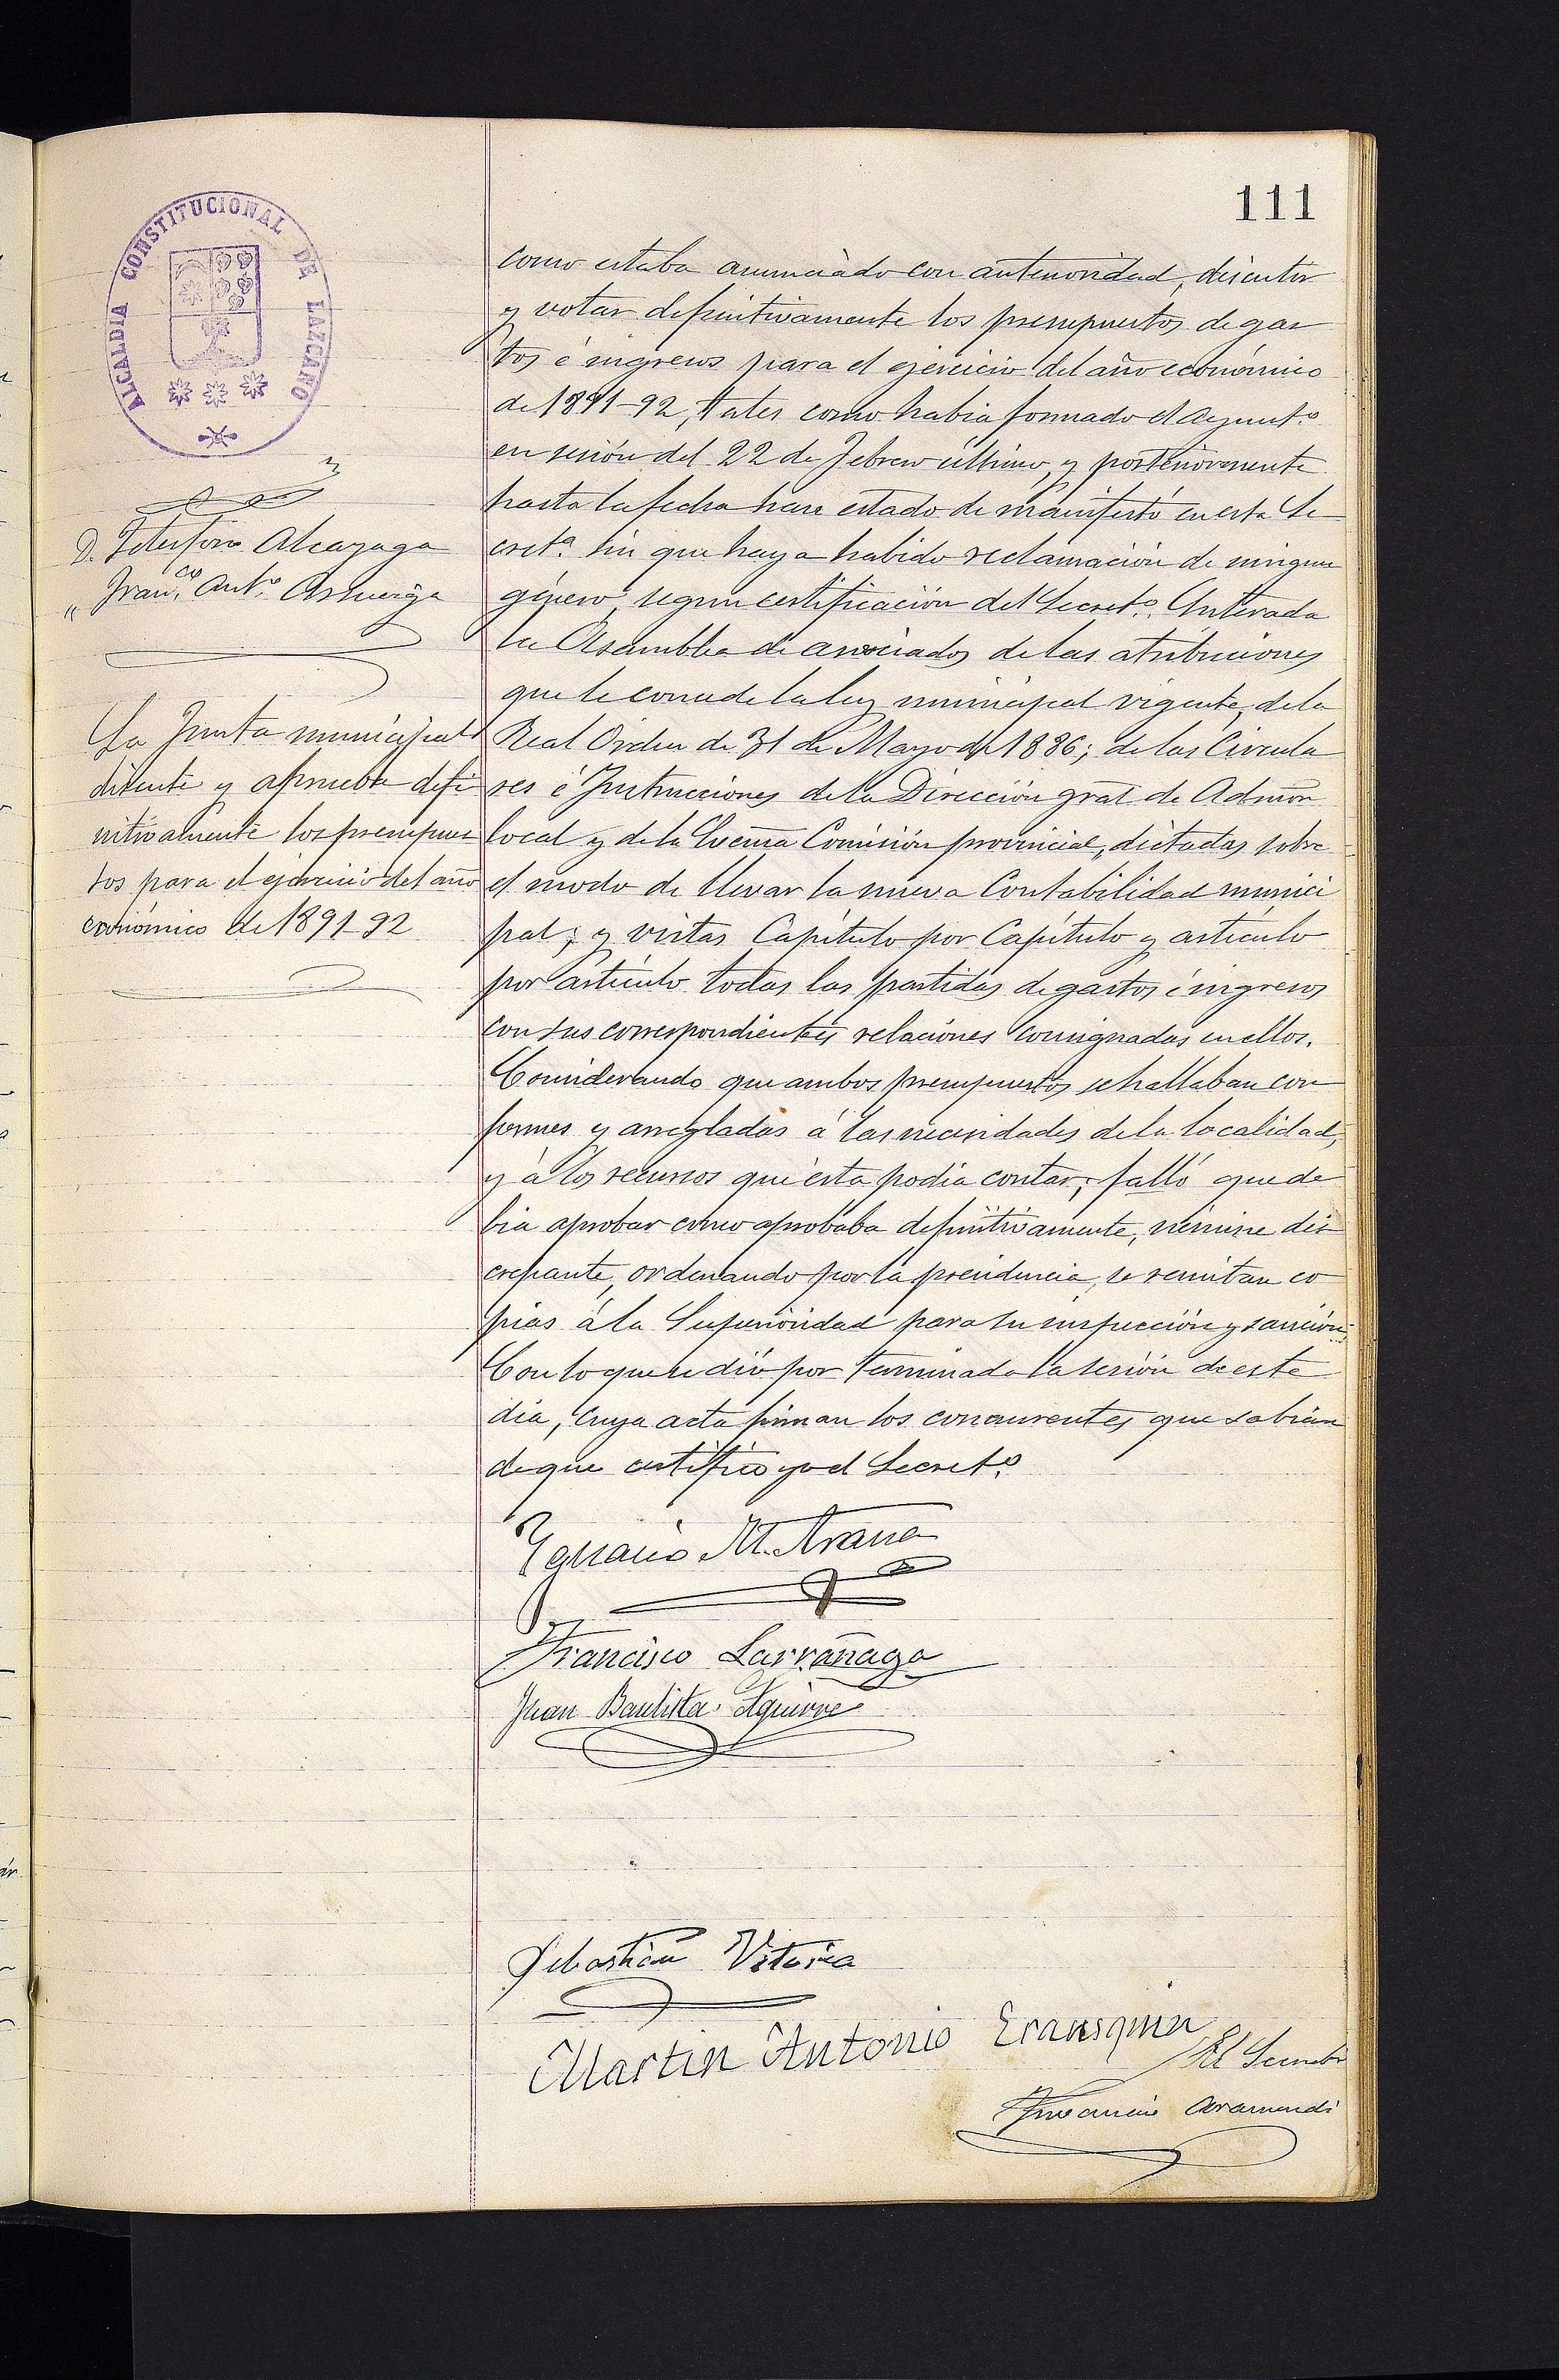 111
ALCALDIA CONSTITUCIONAL DE LAZCANO
D. Telesforo Alcayaga
" Fran.co Ant.o Asteiza
La Junta municipal
discute y aprueba defi
nitivamente los presupues
tos para el ejercicio del año
económico de 1891-92
como estaba anunciado con anterioridad, discutir
y votar definitivamente los presupuestos de gas
tos é ingresos para el ejercicio del año económico
de 1891-92, tales como habia formado el Ayunt.o
en sesión del 22 de Febrero último, y posteriormente
hasta la fecha han estado de manifiesto en esta Se
cret.a sin que haya habido reclamación de ningun
género, segun certificación del Secret.o. Enterada
la Asamblea de asociados de las atribuciones
que le concede la ley municipal vigente, de la
Real Orden de 31 de Mayo de 1886; de las Circula
res é Instrucciones de la Dirección gral de Admón
local y de la Excma Comisión provincial, dictadas sobre
el modo de llevar la nueva Contabilidad munici
pal; y vistas Capítulo por Capítulo y artículo
por artículo todas las partidas de gastos é ingresos
con sus correspondientes relaciones consignadas en ellos.
Considerando que ambos presupuestos se hallaban con
formes y arreglados á las necesidades de la localidad,
y á los recursos que esta podía contar; falló que de
bia aprobar como aprobaba definitivamente, némine dis
crepante, ordenando por la presidencia, se remitan co
pias á la Superioridad para su inspección y sanción.
Con lo que se dió por terminada la sesión de este
dia, cuya acta firman los concurrentes que sabian
de que certifico yo el Secret.o
Ygnacio M. Arana
Francisco Larrañaga
Juan Bautista Aguirre
Sebastian Vitoria
Martin Antonio Eransquin
El Secret.o
Aramendi